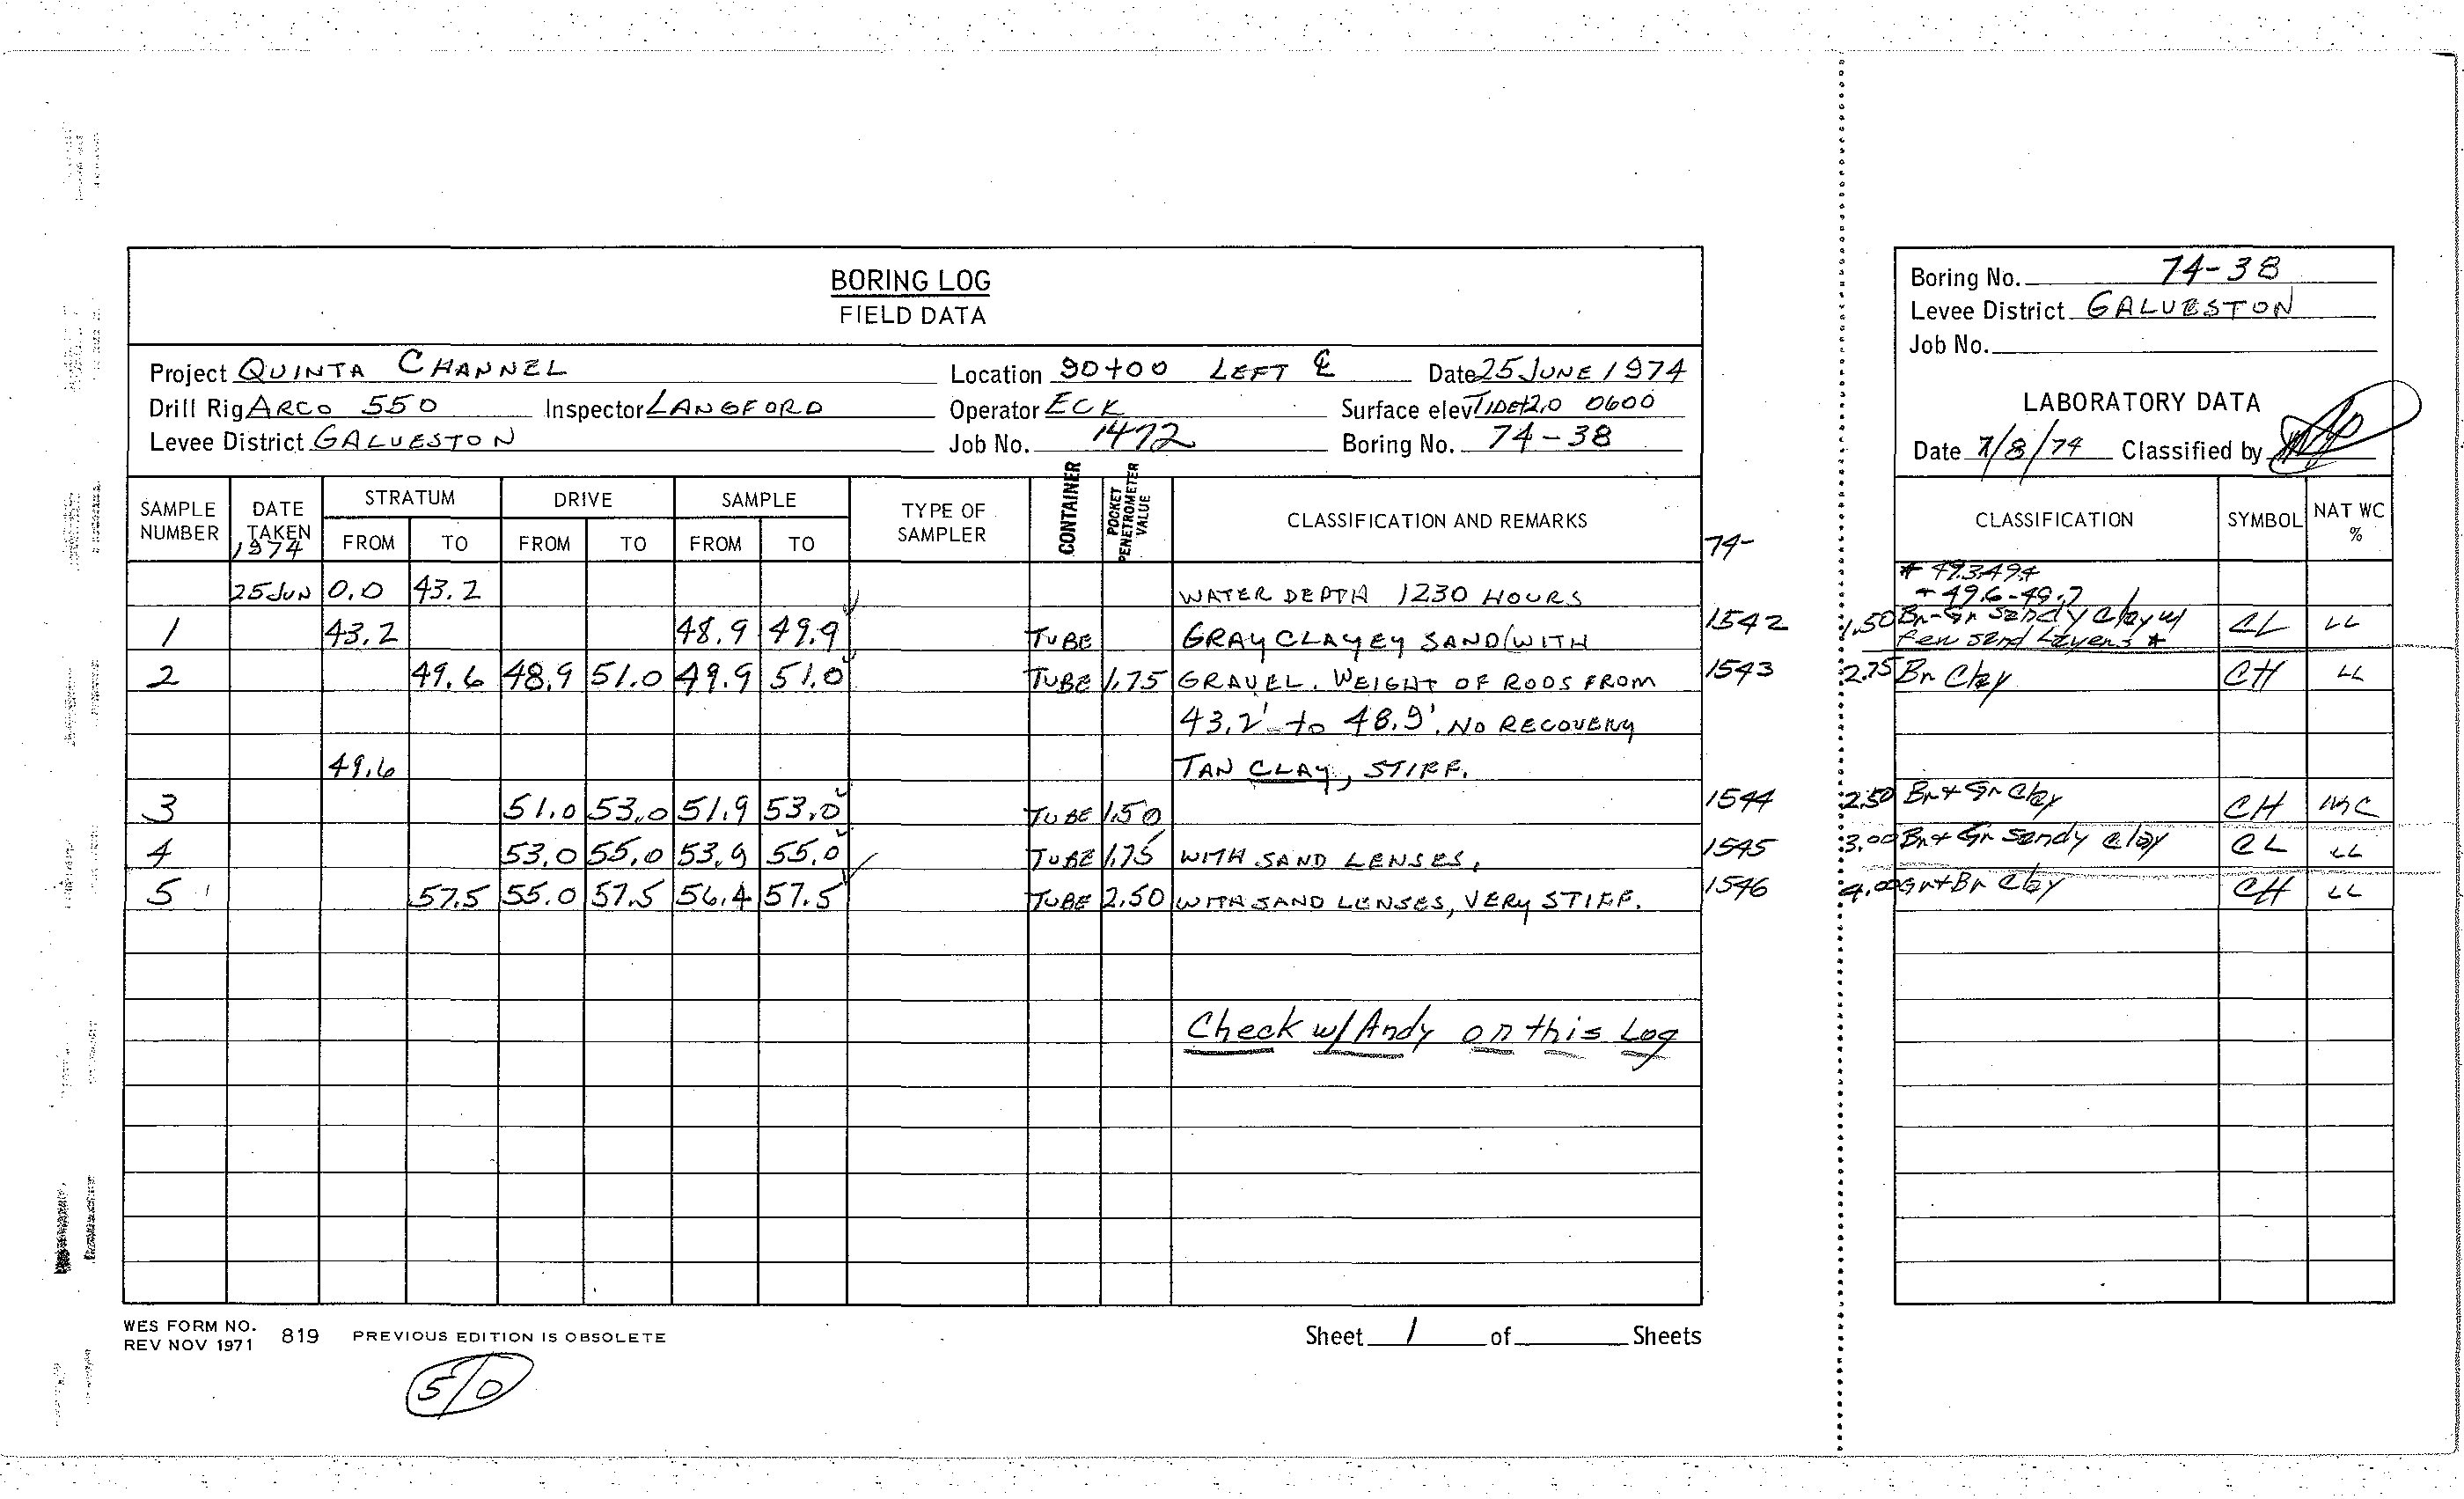 BORING LOG
FIELD DATA
Project QUINTA CHANNEL Location 90+00 LEFT ℄ Date 25 JUNE 1974
Drill Rig ARCO 550 Inspector LANGFORD Operator ECK Surface elev TIDE+2.0 0600
Levee District GALVESTON Job No. 1472 Boring No. 74-38
SAMPLE NUMBER DATE TAKEN 1974 STRATUM FROM TO DRIVE FROM TO SAMPLE FROM TO TYPE OF SAMPLER CONTAINER POCKET PENETROMETER VALUE CLASSIFICATION AND REMARKS 74-
25 JUN 0.0 43.2 WATER DEPTH 1230 HOURS
1 43.2 48.9 49.9 TUBE GRAY CLAYEY SAND WITH 1542
2 49.6 48.9 51.0 49.9 51.0 TUBE 1.75 GRAVEL. WEIGHT OF RODS FROM 1543
43.2' to 48.9'. NO RECOVERY
49.6 TAN CLAY, STIFF.
3 51.0 53.0 51.9 53.0 TUBE 1.50 1544
4 53.0 55.0 53.9 55.0 TUBE 1.75 WITH SAND LENSES, 1545
5 57.5 55.0 57.5 56.4 57.5 TUBE 2.50 WITH SAND LENSES, VERY STIFF. 1546
Check w/ Andy on this Log
WES FORM NO. 819 PREVIOUS EDITION IS OBSOLETE
REV NOV 1971
Sheet 1 of Sheets
5/0
Boring No. 74-38
Levee District GALVESTON
Job No.
LABORATORY DATA
Date 7/8/74 Classified by
CLASSIFICATION SYMBOL NAT WC %
* 49.3-49.4
+ 49.6-49.7
1.50 Br-Gr Sandy Clay w/ CL LL
few sand Layers *
2.75 Br Clay CH LL
2.50 Br+Gr Clay CH MC
3.00 Br+Gr Sandy Clay CL LL
4.00 Gr+Br Clay CH LL